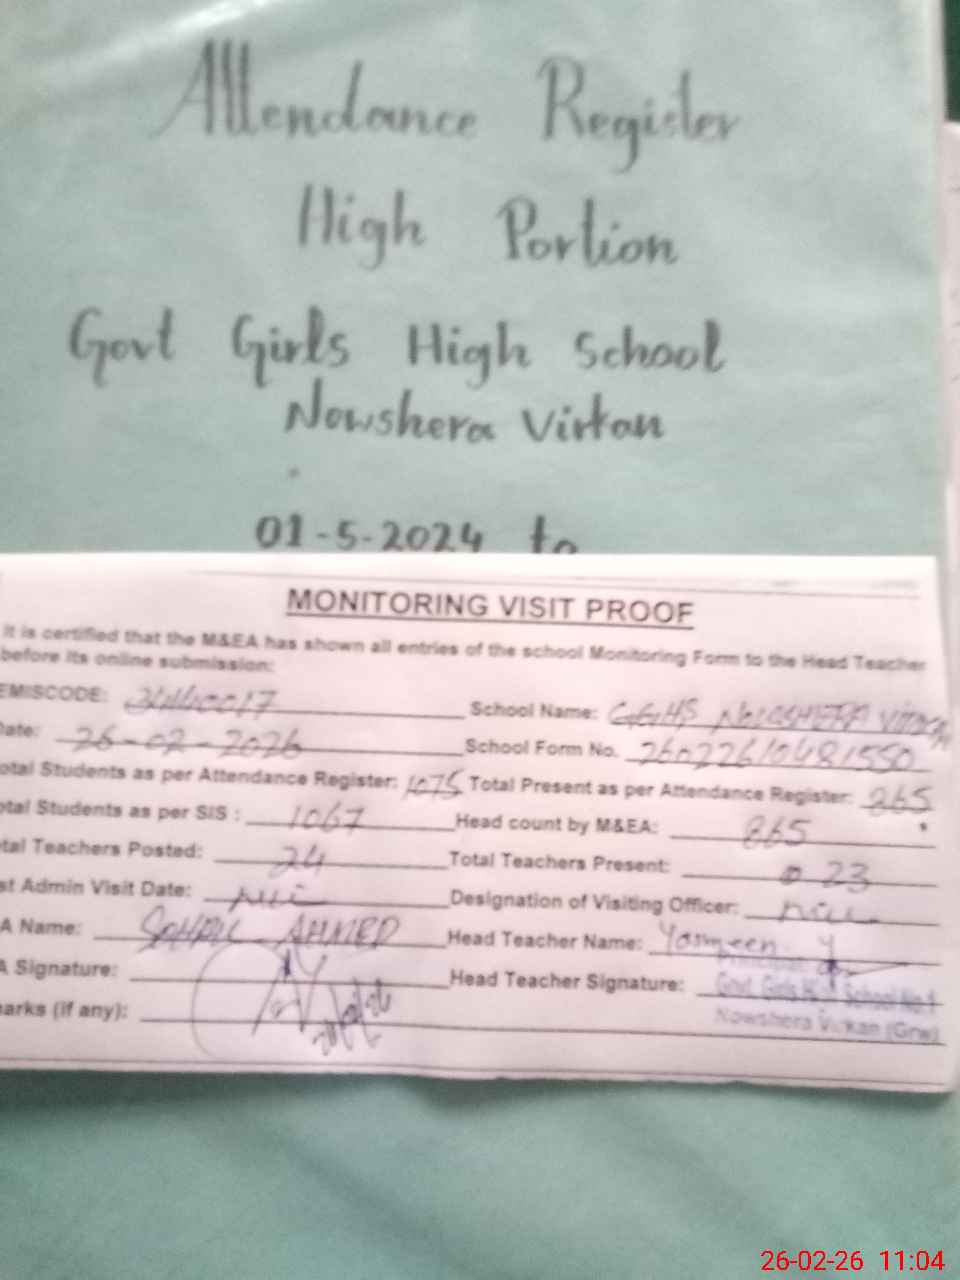 Attendance Register
High Portion
Govt Girls High School
Nowshera Virkan
01-5-2024 to
MONITORING VISIT PROOF
it is certified that the M&EA has shown all entries of the school Monitoring Form to the Head Teacher
before its online submission:
EMISCODE: School Name: GGHS NOWSHERA VIRKAN
Date: 26-02-2026 School Form No. 26022610481550
otal Students as per Attendance Register: 1075 Total Present as per Attendance Register: 865
otal Students as per SIS : 1067 Head count by M&EA: 865
tal Teachers Posted: 24 Total Teachers Present: 23
st Admin Visit Date: Nil Designation of Visiting Officer: Nil
A Name: SOHAIL AHMED Head Teacher Name: Yasmeen Y
A Signature: Head Teacher Signature:
arks (if any):
Principal
Govt. Girls High School No.1
Nowshera Virkan (Grw)
26-02-26 11:04